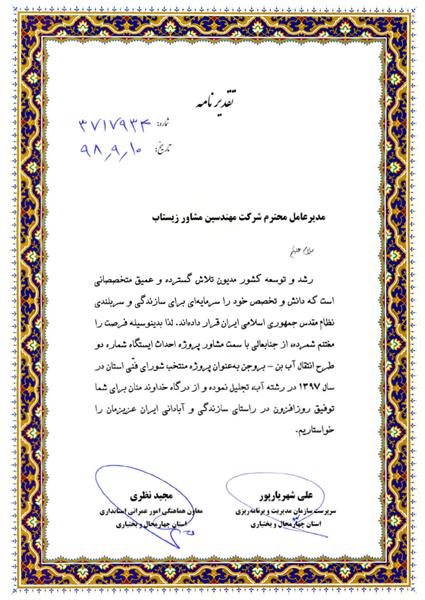 تقدیرنامه
شماره: ۳۷۱۷۹۳۴
تاریخ: ۹۸٫۹٫۱۰
مدیرعامل محترم شرکت مهندسین مشاور زیستاب
سلام علیکم
رشد و توسعه کشور مدیون تلاش گسترده و عمیق متخصصانی
است که دانش و تخصص خود را سرمایه‌ای برای سازندگی و سربلندی
نظام مقدس جمهوری اسلامی ایران قرار داده‌اند. لذا بدینوسیله فرصت را
مغتنم شمرده، از جنابعالی با سمت مشاور پروژه احداث ایستگاه شماره دو
طرح انتقال آب بن - بروجن به‌عنوان پروژه منتخب شورای فنّی استان در
سال ۱۳۹۷ در رشته آب، تجلیل نموده و از درگاه خداوند منان برای شما
توفیق روزافزون در راستای سازندگی و آبادانی ایران عزیزمان را
خواستاریم.
علی شهریارپور
سرپرست سازمان مدیریت و برنامه‌ریزی
استان چهارمحال و بختیاری
مجید نظری
معاون هماهنگی امور عمرانی استانداری
استان چهارمحال و بختیاری